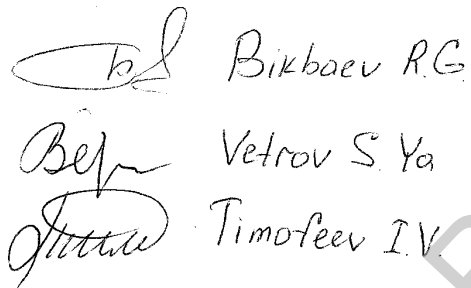 Bikbaev R.G.
Vetrov S. Ya
Timofeev I.V.